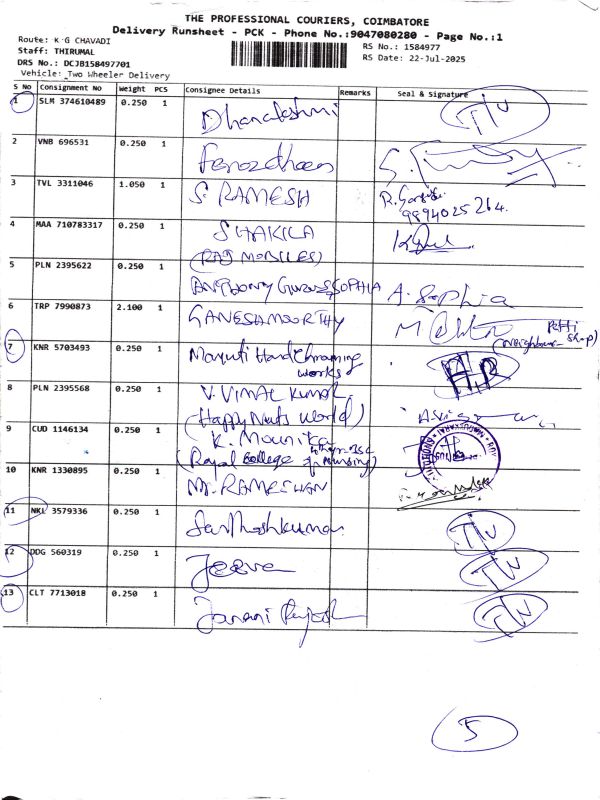 THE PROFESSIONAL COURIERS, COIMBATORE
Delivery Runsheet - PCK - Phone No.:9047080280 - Page No.:1
Route: K G CHAVADI
RS No.: 1584977
Staff: THIRUMAL
RS Date: 22-Jul-2025
DRS No.: DCJB158497701
Vehicle: Two Wheeler Delivery
S No Consignment No Weight PCS Consignee Details Remarks Seal & Signature
1 SLM 374610489 0.250 1 Dhanalakshmi
2 VNB 696531 0.250 1
3 TVL 3311046 1.050 1 S. RAMESH R.
9894025264.
4 MAA 710783317 0.250 1 SHAKILA
(RAJ MOBILES)
5 PLN 2395622 0.250 1 SOPHIA A. Sophia
6 TRP 7990873 2.100 1 GANESHMOORTHY
(Neighbour- Shop)
7 KNR 5703493 0.250 1 Maruti Hard Chroming
works
8 PLN 2395568 0.250 1 V. VIMAL KUMAR
(Happy Nuts World)
9 CUD 1146134 0.250 1 K. Mounika
(Royal College of Nursing)
10 KNR 1330895 0.250 1 Mr. RAMESWAN
11 NKL 3579336 0.250 1 Santhoshkumar
12 DDG 560319 0.250 1 Jeeva
13 CLT 7713018 0.250 1 Janani
5